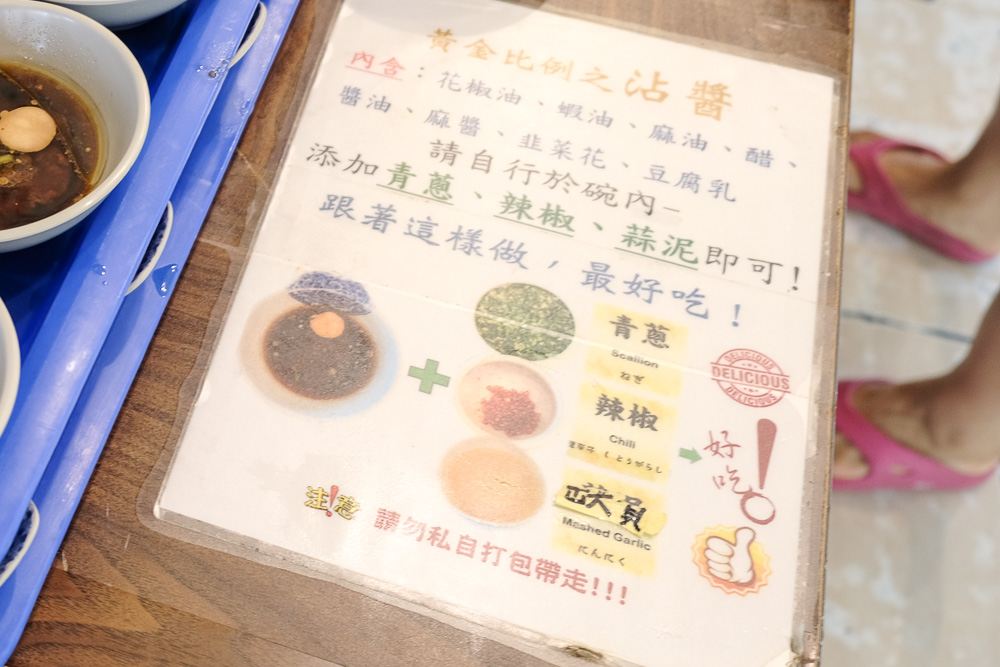 黃金比例之沾醬
內含：花椒油、蝦油、麻油、醋、
醬油、麻醬、韭菜花、豆腐乳
請自行於碗內—
添加青蔥、辣椒、蒜泥即可!
跟著這樣做，最好吃！
青蔥
Scallion
ねぎ
辣椒
Chili
唐辛子（とうがらし
Mashed Garlic
にんにく
DELICIOUS
DELICIOUS
DELICIOUS
好吃!
注!意
請勿私自打包帶走!!!